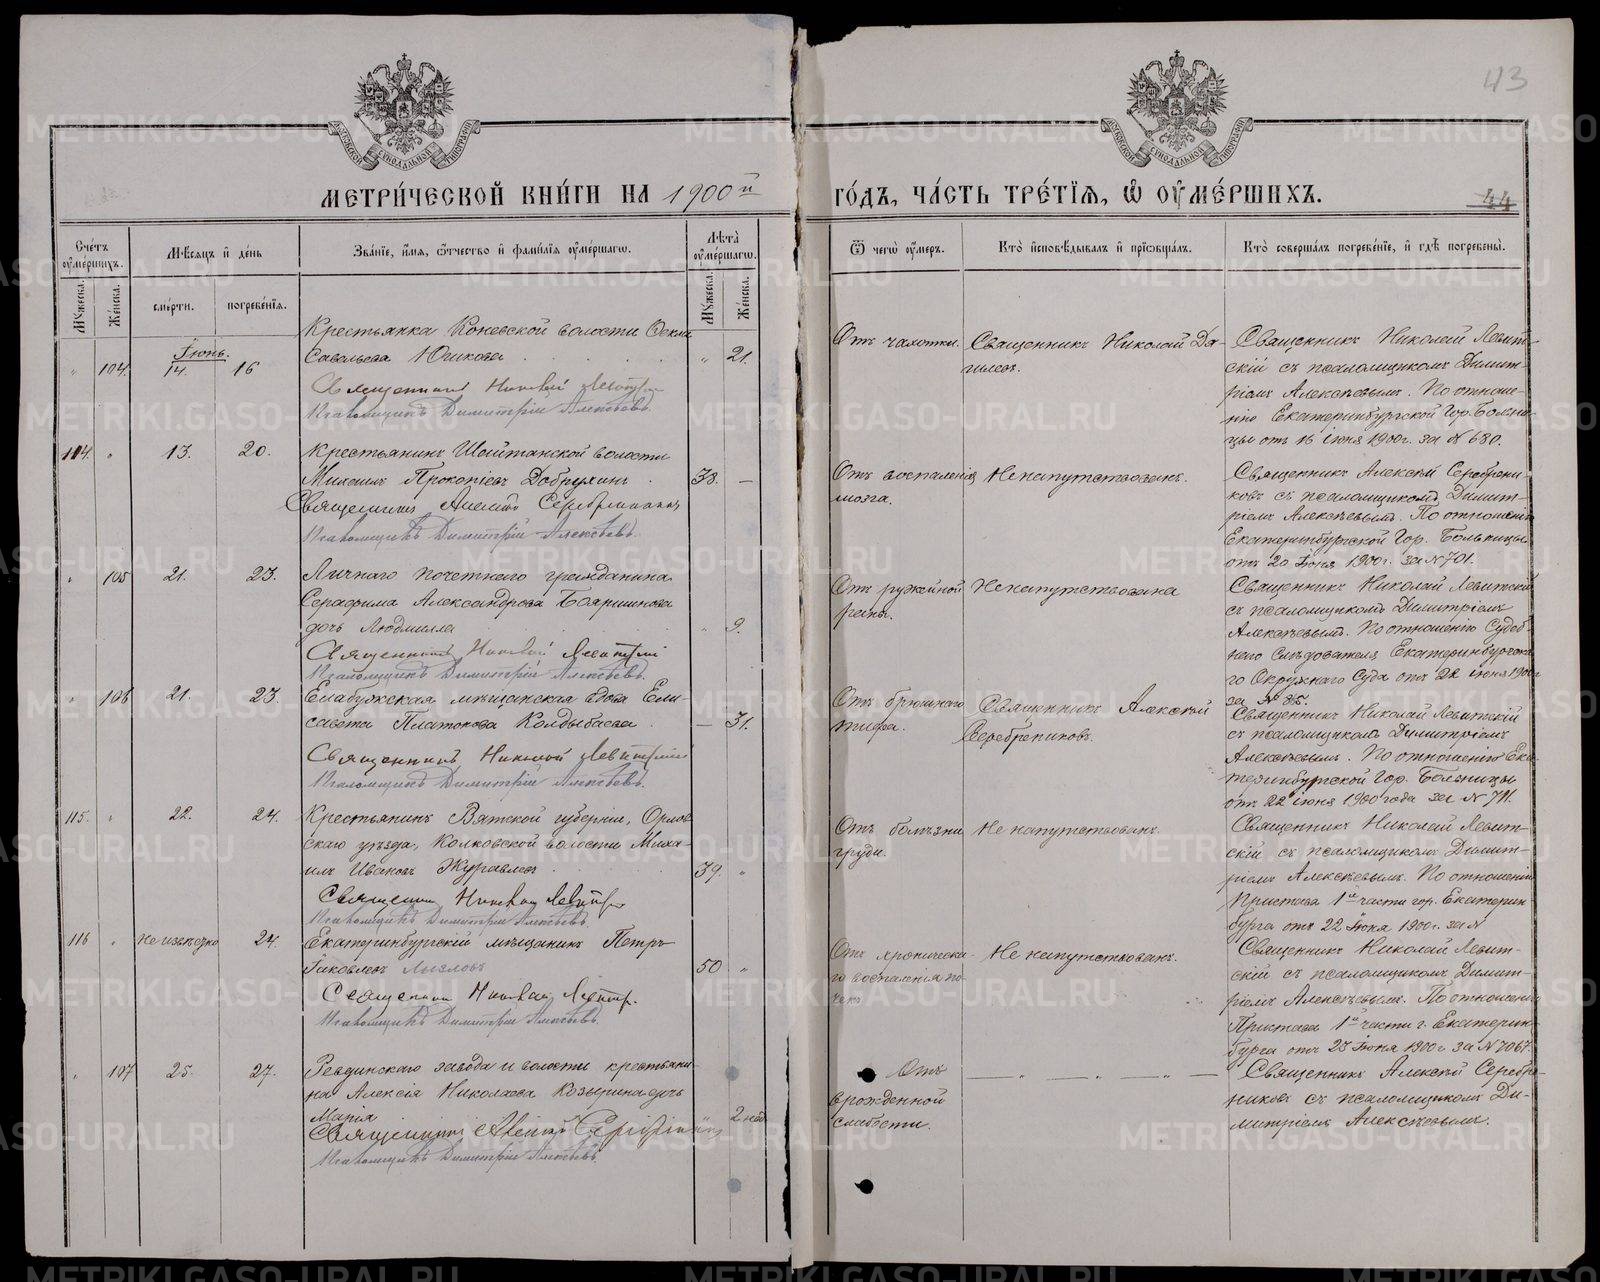 43
МОСКОВСКОЙ СѴНОДАЛЬНОЙ ТИПОГРАФІИ
МОСКОВСКОЙ СѴНОДАЛЬНОЙ ТИПОГРАФІИ
МЕТРИ́ЧЕСКОЙ КНИ́ГИ НА 1900й
ГО́ДЪ, ЧА́СТЬ ТРЕ́ТІѦ, Ѽ ОУМЕ́РШИХЪ.
44
Сче́тъ оуме́ршихъ.
Мѣ́сѧцъ и҆ де́нь
Зва́нїе, и҆́мѧ, ѻ҆́тчество и҆ фами́лїѧ оуме́ршагѡ.
Лѣ́та оуме́ршагѡ.
Му́жеска.
Же́нска.
сме́рти.
погребе́нїѧ.
Му́жеска.
Же́нска.
Ѿ чегѡ̀ оу́меръ.
Кто̀ и҆сповѣ́дывалъ и҆ прїѡбща́лъ.
Кто̀ соверша́лъ погребе́нїе, и҆ гдѣ̀ погребены̀.
„ 104. Іюнь. 14. 16
Крестьянка Коневской волости Фекла
Савельева Юшкова „ 21.
Священникъ Николай Левитскій
Псаломщикъ Димитрій Алексѣевъ.
Отъ чахотки.
Священникъ Николай Да-
гилевъ.
Священникъ Николай Левит-
скій съ псаломщикомъ Димит-
ріемъ Алексѣевымъ. По отноше-
нію Екатеринбургской Гор. Больни-
цы отъ 16 іюня 1900г. за № 680.
114. „ 13. 20.
Крестьянинъ Шайтанской волости
Михаилъ Прокопіевъ Добрухинъ 38. —
Священникъ Алексѣй Серебренниковъ
Псаломщикъ Димитрій Алексѣевъ.
Отъ воспаленія
мозга.
Ненапутствованъ.
Священникъ Алексѣй Серебрени-
ковъ съ псаломщикомъ Димит-
ріемъ Алексѣевымъ. По отношенію
Екатеринбургской Гор. Больницы
отъ 20 Іюня 1900г. за № 701.
„ 105 21. 23.
Личнаго почетнаго гражданина
Серафима Александрова Бояршинова
дочь Людмилла „ 9.
Священникъ Николай Левитскій
Псаломщикъ Димитрій Алексѣевъ.
Отъ ружейной
раны.
Ненапутствована
Священникъ Николай Левитскій
съ псаломщикомъ Димитріемъ
Алексѣевымъ. По отношенію Судеб-
наго Слѣдователя Екатеринбургска-
го Окружнаго Суда отъ 22 іюня 1900г
за №
„ 106 21. 23.
Елабужская мѣщанская вдова Ели-
савета Платонова Колдыбаева — 31.
Священникъ Николай Левитскій
Псаломщикъ Димитрій Алексѣевъ.
Отъ брюшнаго
тифа.
Священникъ Алексѣй
Серебрениковъ.
Священникъ Николай Левитскій
съ псаломщикомъ Димитріемъ
Алексѣевымъ. По отношенію Ека-
теринбургской Гор. Больницы
отъ 22 іюня 1900 года за № 711.
115. „ 22. 24.
Крестьянинъ Вятской губерніи, Орлов-
скаго уѣзда, Колковской волости Миха-
илъ Ивановъ Журавлевъ 39. „
Священникъ Николай Левитскій
Псаломщикъ Димитрій Алексѣевъ.
Отъ болѣзни
груди.
Не напутствованъ.
Священникъ Николай Левит-
скій съ псаломщикомъ Димит-
ріемъ Алексѣевымъ. По отношенію
Пристава 1й части гор. Екатерин-
бурга отъ 22 Іюня 1900г. за №
116 „ неизвѣстно 24.
Екатеринбургскій мѣщанинъ Петръ
Іаковлевъ Лызловъ 50 „
Священникъ Николай Левитс.
Псаломщикъ Димитрій Алексѣевъ.
Отъ хроническа-
го воспаленія по-
чекъ
Не напутствованъ.
Священникъ Николай Левит-
скій съ псаломщикомъ Димит-
ріемъ Алексѣевымъ. По отношенію
Пристава 1й части г. Екатерин-
бурга отъ 23 Іюня 1900г за № 7067.
„ 107 25. 27.
Ревдинскаго завода и волости крестьяни-
на Алексія Николаева Козырина дочь
Марія „ 2 нед
Священникъ Алексѣй Серебренниковъ
Псаломщикъ Димитрій Алексѣевъ.
Отъ
врожденной
слабости.
— „ — „ — „ —
Священникъ Алексѣй Сереbре-
никовъ съ псаломщикомъ Ди-
митріемъ Алексѣевымъ.
METRIKI.GASO-URAL.RU